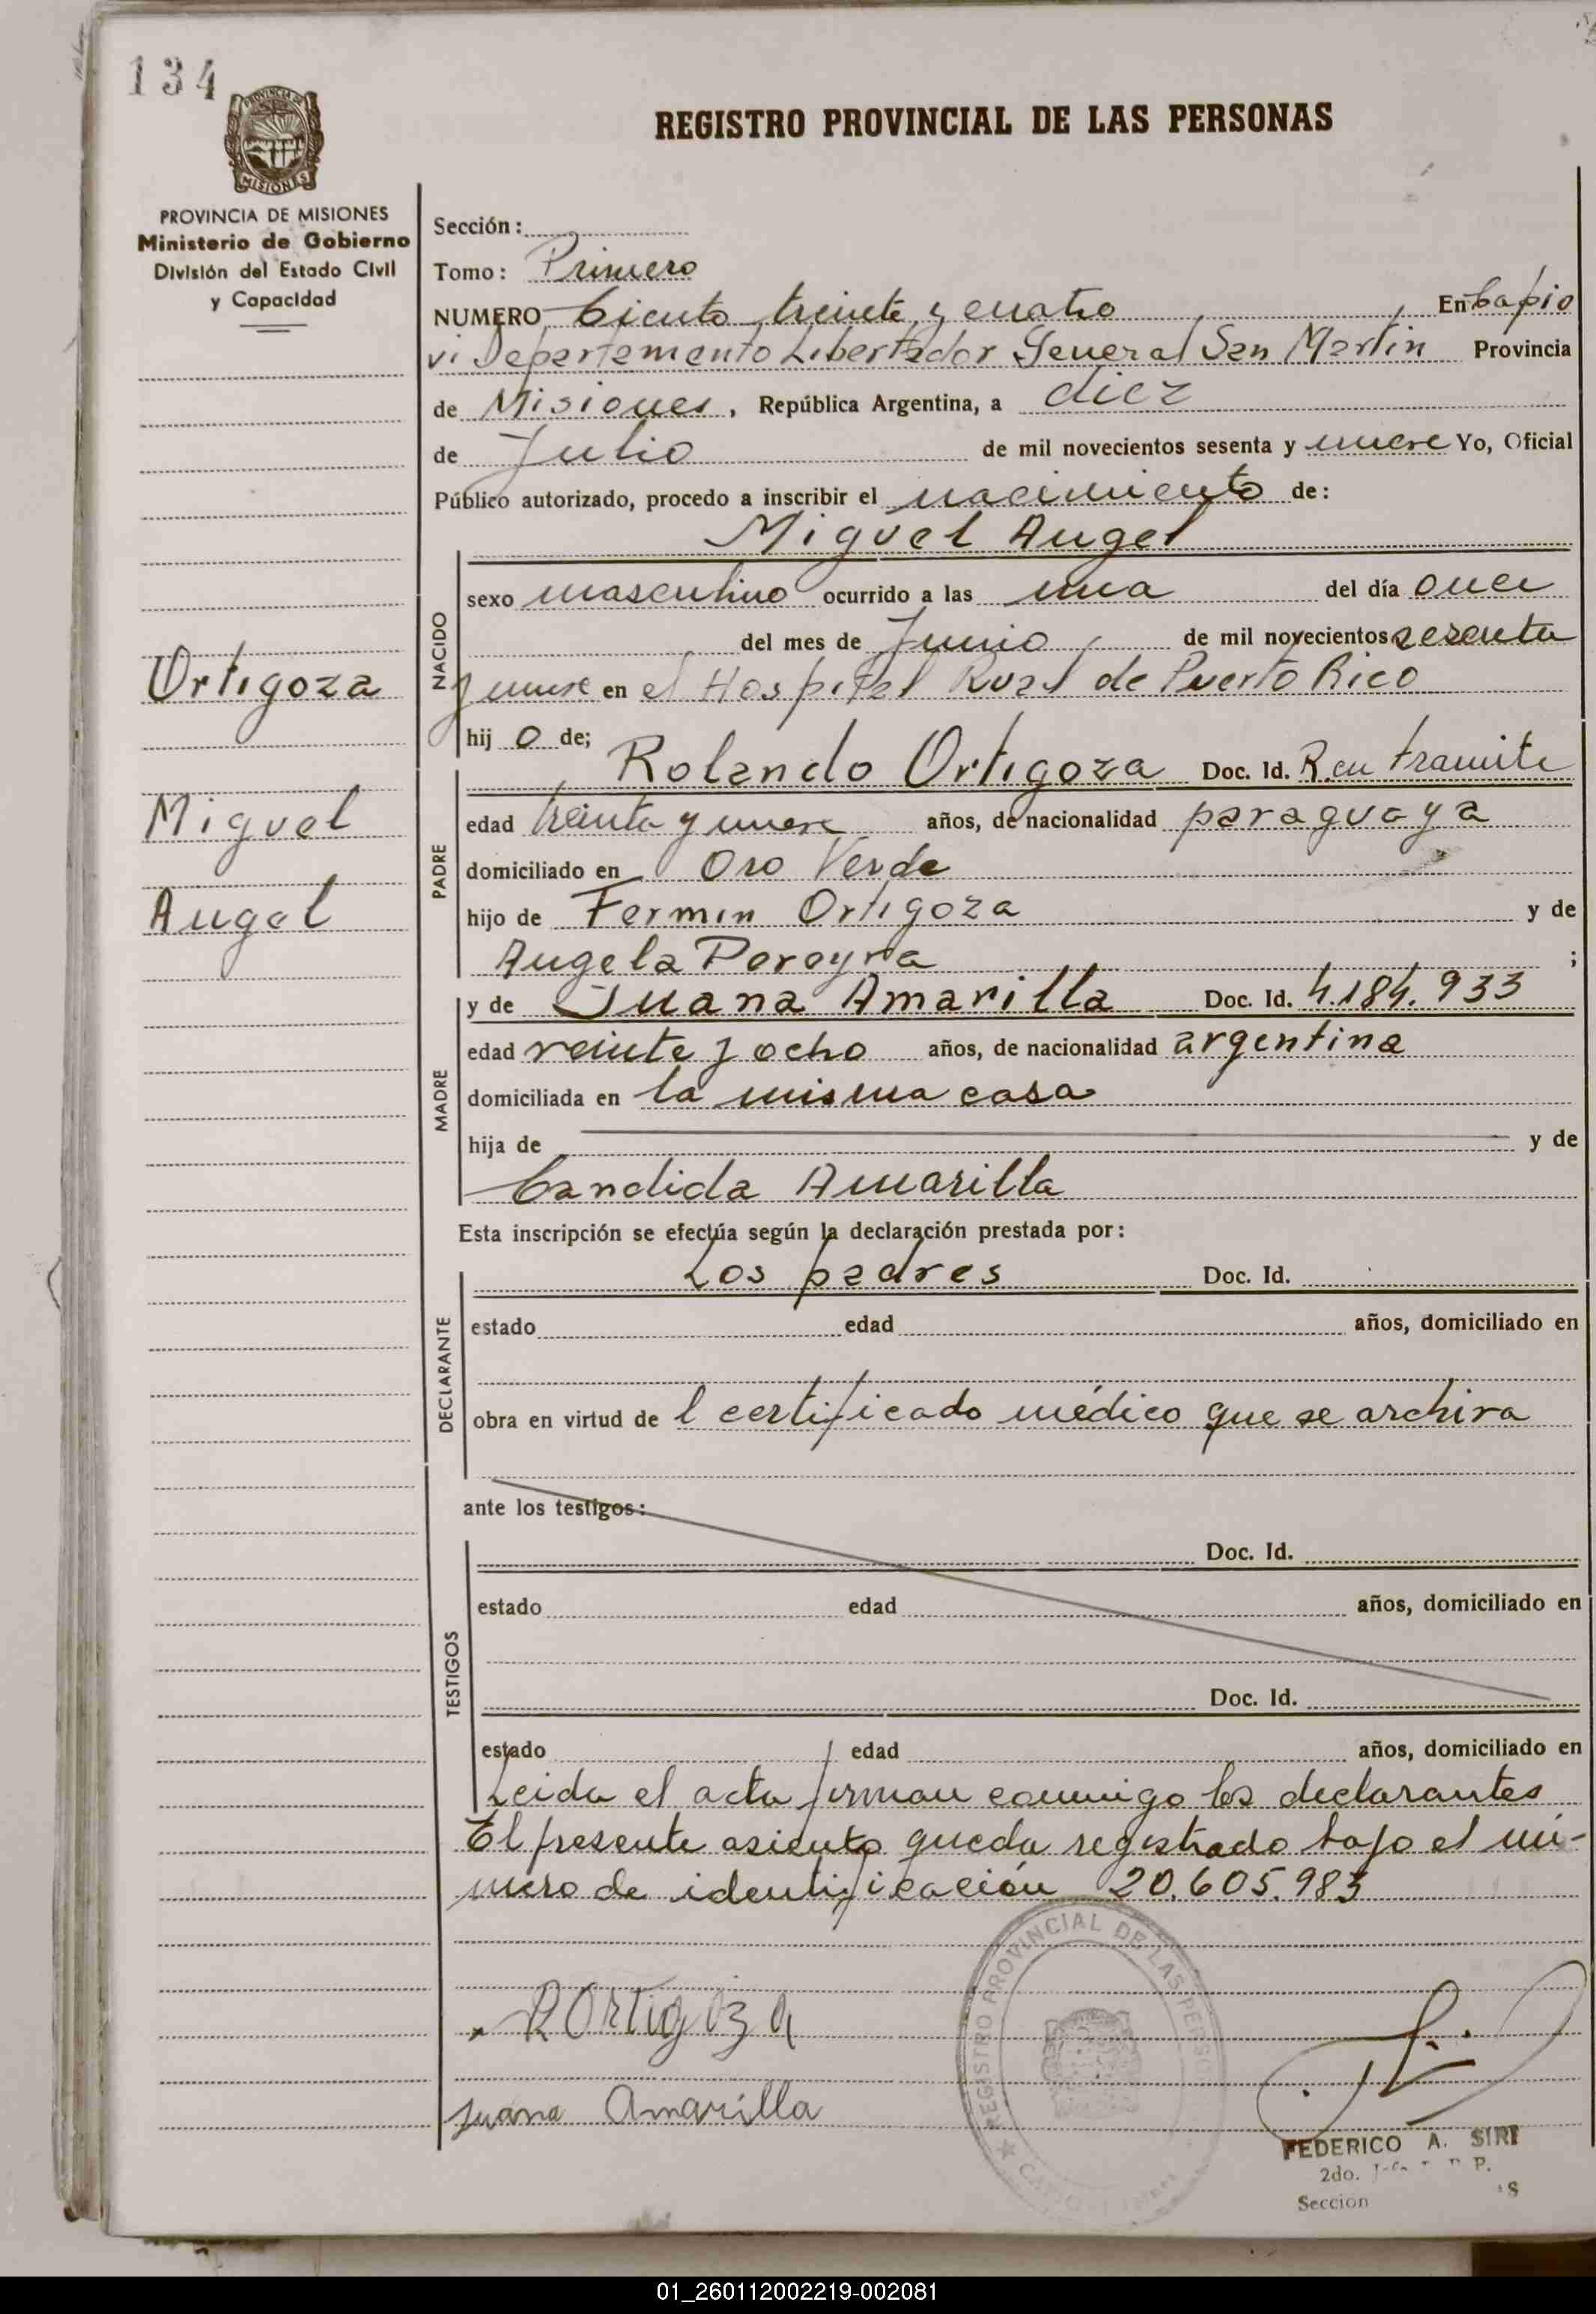 134
PROVINCIA DE MISIONES
Ministerio de Gobierno
División del Estado Civil
y Capacidad
REGISTRO PROVINCIAL DE LAS PERSONAS
Sección:
Tomo: Primero
NUMERO Ciento treinta y cuatro En Capio
vi Departamento Libertador General San Martin Provincia
de Misiones, República Argentina, a diez
de Julio de mil novecientos sesenta y nueve Yo, Oficial
Público autorizado, procedo a inscribir el nacimiento de:
Miguel Angel
NACIDO
sexo masculino ocurrido a las una del día once
del mes de Junio de mil novecientos sesenta
y nueve en el Hospital Rural de Puerto Rico
hij o de;
Ortigoza
Miguel
Angel
PADRE
Rolando Ortigoza Doc. Id. R. en tramite
edad treinta y nueve años, de nacionalidad paraguaya
domiciliado en Oro Verde
hijo de Fermin Ortigoza y de
Angela Pereyra ;
MADRE
y de Juana Amarilla Doc. Id. 4.184.933
edad veinte y ocho años, de nacionalidad argentina
domiciliada en la misma casa
hija de y de
Candida Amarilla
Esta inscripción se efectúa según la declaración prestada por:
DECLARANTE
Los padres Doc. Id.
estado edad años, domiciliado en
obra en virtud de l certificado médico que se archiva
ante los testigos:
TESTIGOS
Doc. Id.
estado edad años, domiciliado en
Doc. Id.
estado edad años, domiciliado en
Leida el acta firman conmigo los declarantes
El presente asiento queda registrado bajo el nú-
mero de identificación 20.605.983
R Ortigoza
Juana Amarilla
REGISTRO PROVINCIAL DE LAS PERSO
FEDERICO A. SIRI
2do. P.
Sección
01_260112002219-002081